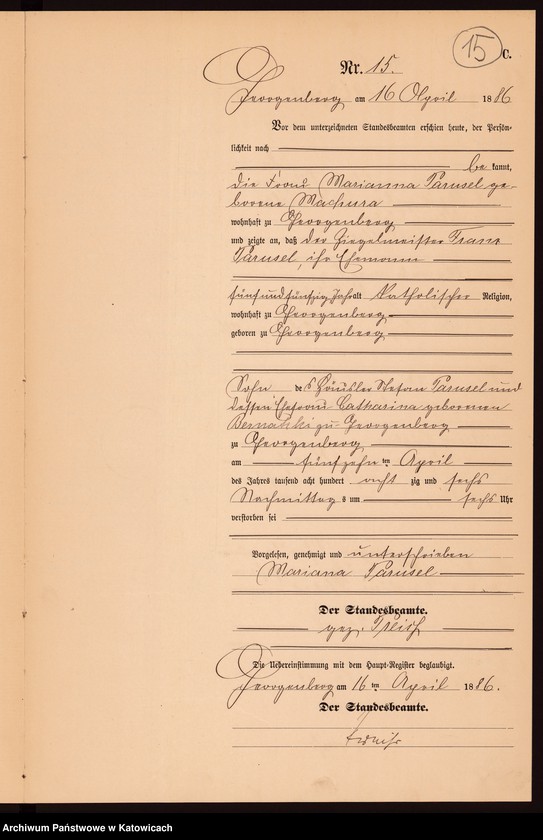 15
C.
Nr. 15.
Georgenberg am 16 April 1886
Vor dem unterzeichneten Standesbeamten erschien heute, der Persön-
lichkeit nach
be kannt,
die Frau Marianna Parusel ge-
borene Machura
wohnhaft zu Georgenberg
und zeigte an, daß der Ziegelmeister Franz
Parusel, ihr Ehemann
fünf und fünfzig Jahr alt katholischer Religion,
wohnhaft zu Georgenberg
geboren zu Georgenberg
Sohn des Häusler Stefan Parusel und
dessen Ehefrau Catharina geborenen
zu Georgenberg
zu Georgenberg
am fünfzehn ten April
des Jahres tausend acht hundert acht zig und sechs
Nachmittag s um sechs Uhr
verstorben sei
Vorgelesen, genehmigt und unterschrieben
Mariana Parusel
Der Standesbeamte.
gez.
Die Uebereinstimmung mit dem Haupt-Register beglaubigt.
Georgenberg am 16 ten April 1886.
Der Standesbeamte.
Archiwum Państwowe w Katowicach